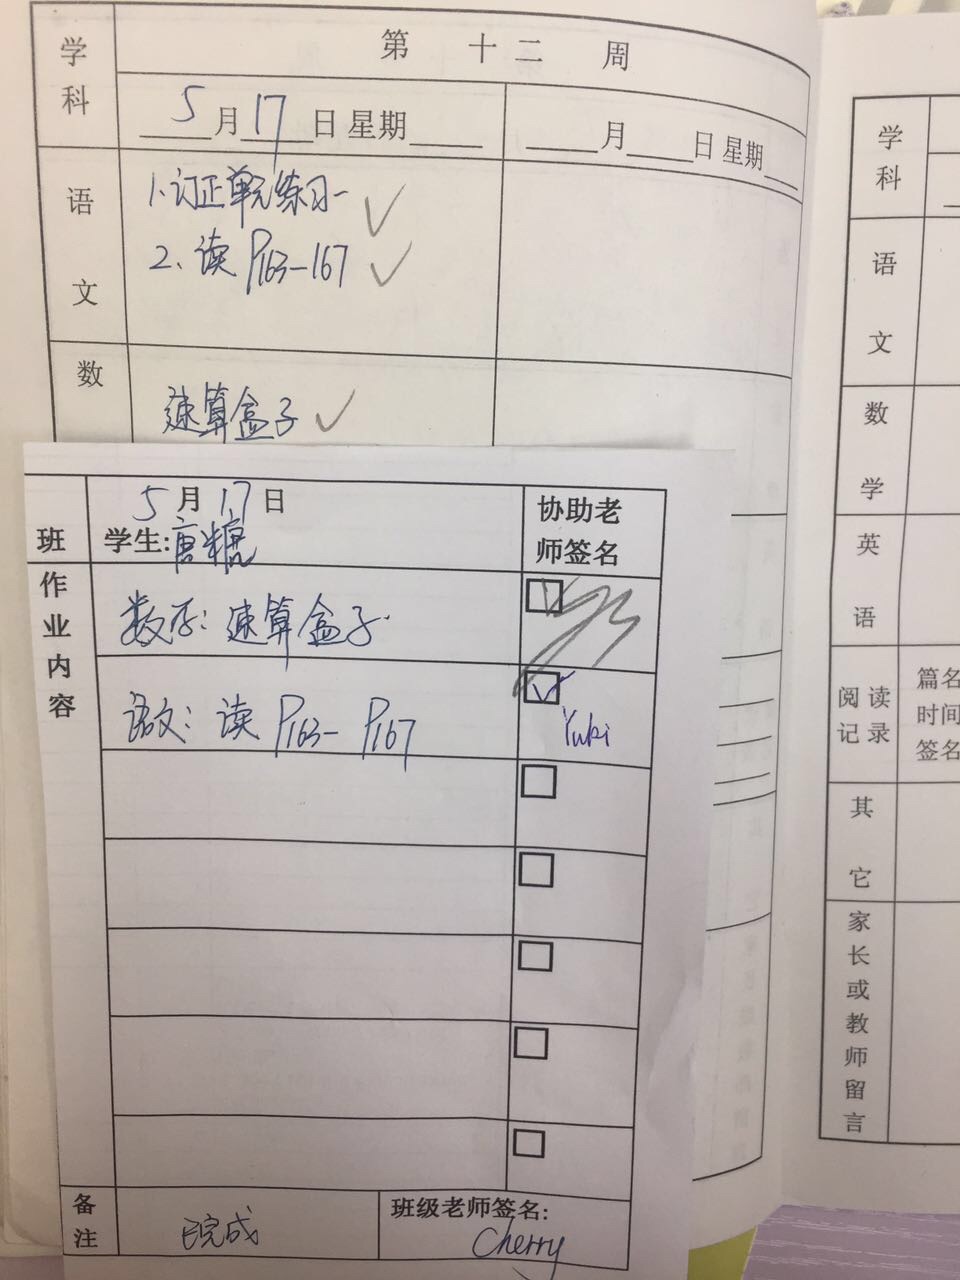 学科
第 十二 周
5月17日 星期____
____月____日 星期____
语文
1.订正单元练习一
2、读P163-167
数
速算盒子
5月17日
班
学生:唐糖
协助老师签名
作业内容
数学:速算盒子.
语文:读 P163-P167
Yuki
备注
已完成
班级老师签名:
Cherry
学科
语文
数学
英语
阅读记录
篇名
时间
签名
其它
家长或教师留言